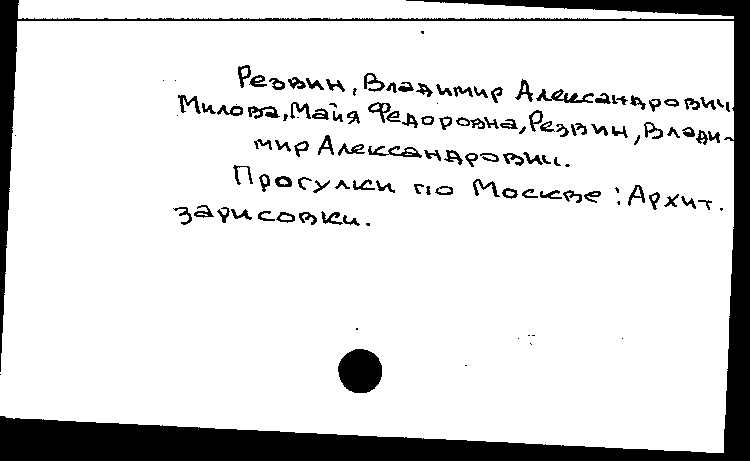 Резвин, Владимир Александрович.
Милова, Майя Федоровна, Резвин, Влади-
мир Александрович.
Прогулки по Москве : Архит.
зарисовки.